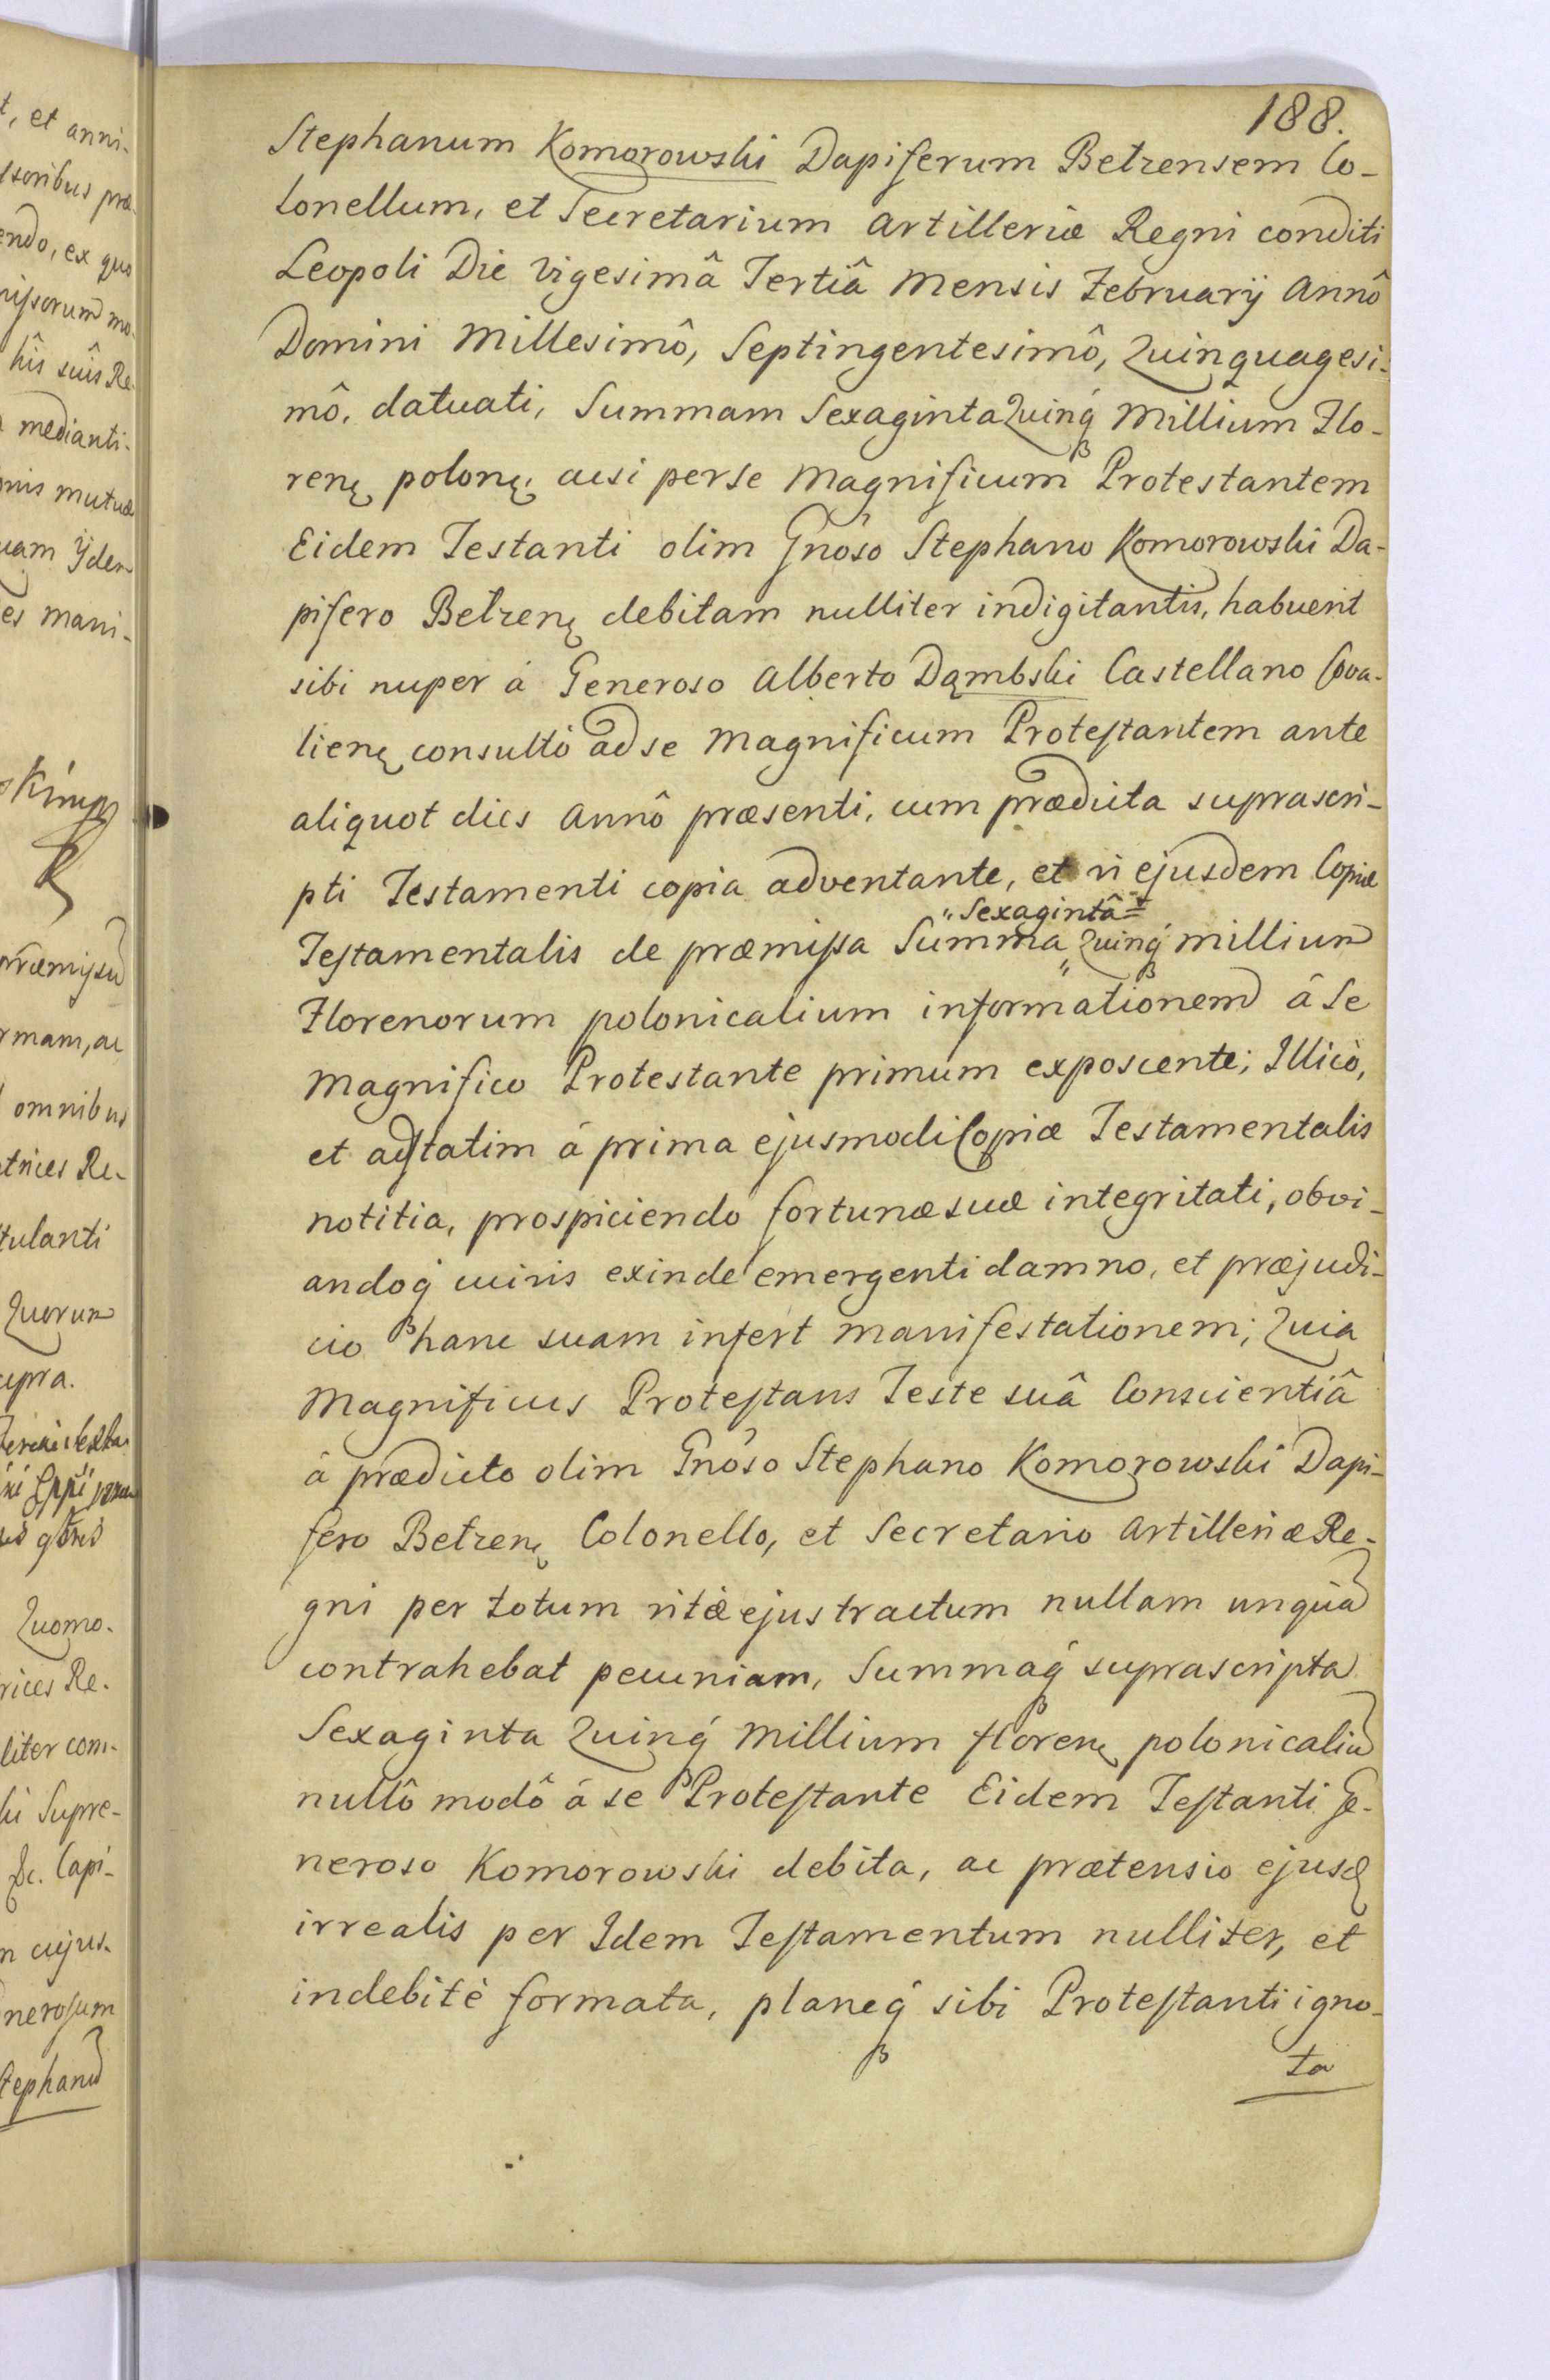 188.
Stephanum Komorowski Dapiferum Betzensem Co-
lonellum, et Secretarium Artilleriæ Regni conditi
Leopoli Die Vigesimâ Tertiâ Mensis February Annô
Domini Millesimô, Septingentesimô, Quinquagesi-
mô, datuati, Summam Sexaginta Quinq́ Millium Flo-
renę polonę, acsi per se Magnificum Protestantem
Eidem Testanti olim Gnôso Stephano Komorowski Da-
pifero Betzenę debitam nulliter indigitantis, habuerit
sibi nuper á Generoso Alberto Dąmbski Castellano Cova-
lienę consultó ad se Magnificum Protestantem ante
aliquot dies Annô præsenti, cum prædicta suprascri-
pti Testamenti copia adventante, et vi ejusdem Copiæ
"Sexagintâ=
Testamentalis de præmissa Summa " Quinq́ millium
Florenorum polonicalium informationem â Se
Magnifico Protestante primum exposcente; Illicò,
et adstatim á prima ejusmodi Copiæ Testamentalis
notitia, prospiciendo fortunæ suæ integritati, obvi-
andoq́ cuivis exinde emergenti damno, et præjudi-
cio hanc suam infert manifestationem; Quia
Magnificus Protestans Teste suâ Conscientiâ
á prædicto olim Gnôso Stephano Komorowski Dapi-
fero Betzenę Colonello, et Secretario Artilleriæ Re-
gni per totum vitæ ejus tractum nullam unquã
contrahebat pecuniam, Summaq́ suprascripta
Sexaginta Quinq́ Millium florenę polonicaliũ
nullô modô á se Protestante Eidem Testanti Ge-
neroso Komorowski debita, ac prætensio ejusđ
irrealis per Idem Testamentum nulliter, et
indebitè formata, planeq́ sibi Protestanti igno-
ta